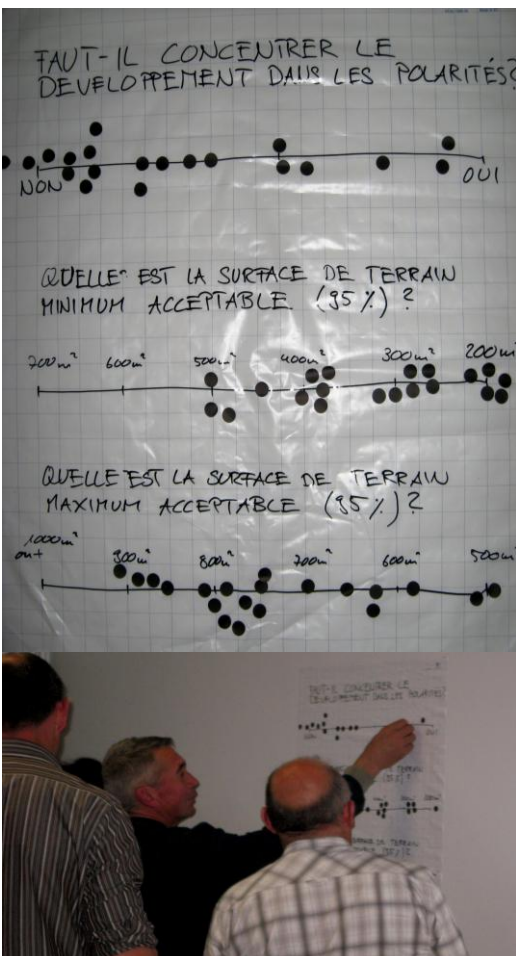 FAUT-IL CONCENTRER LE
DEVELOPPEMENT DANS LES POLARITÉS?
NON OUI
QUELLE EST LA SURFACE DE TERRAIN
MINIMUM ACCEPTABLE (95%)?
700m² 600m² 500m² 400m² 300m² 200m²
QUELLE EST LA SURFACE DE TERRAIN
MAXIMUM ACCEPTABLE (95%)?
1000m²
ou + 900m² 800m² 700m² 600m² 500m²
FAUT-IL CONCENTRER LE
DEVELOPPEMENT DANS LES POLARITÉS?
NON OUI